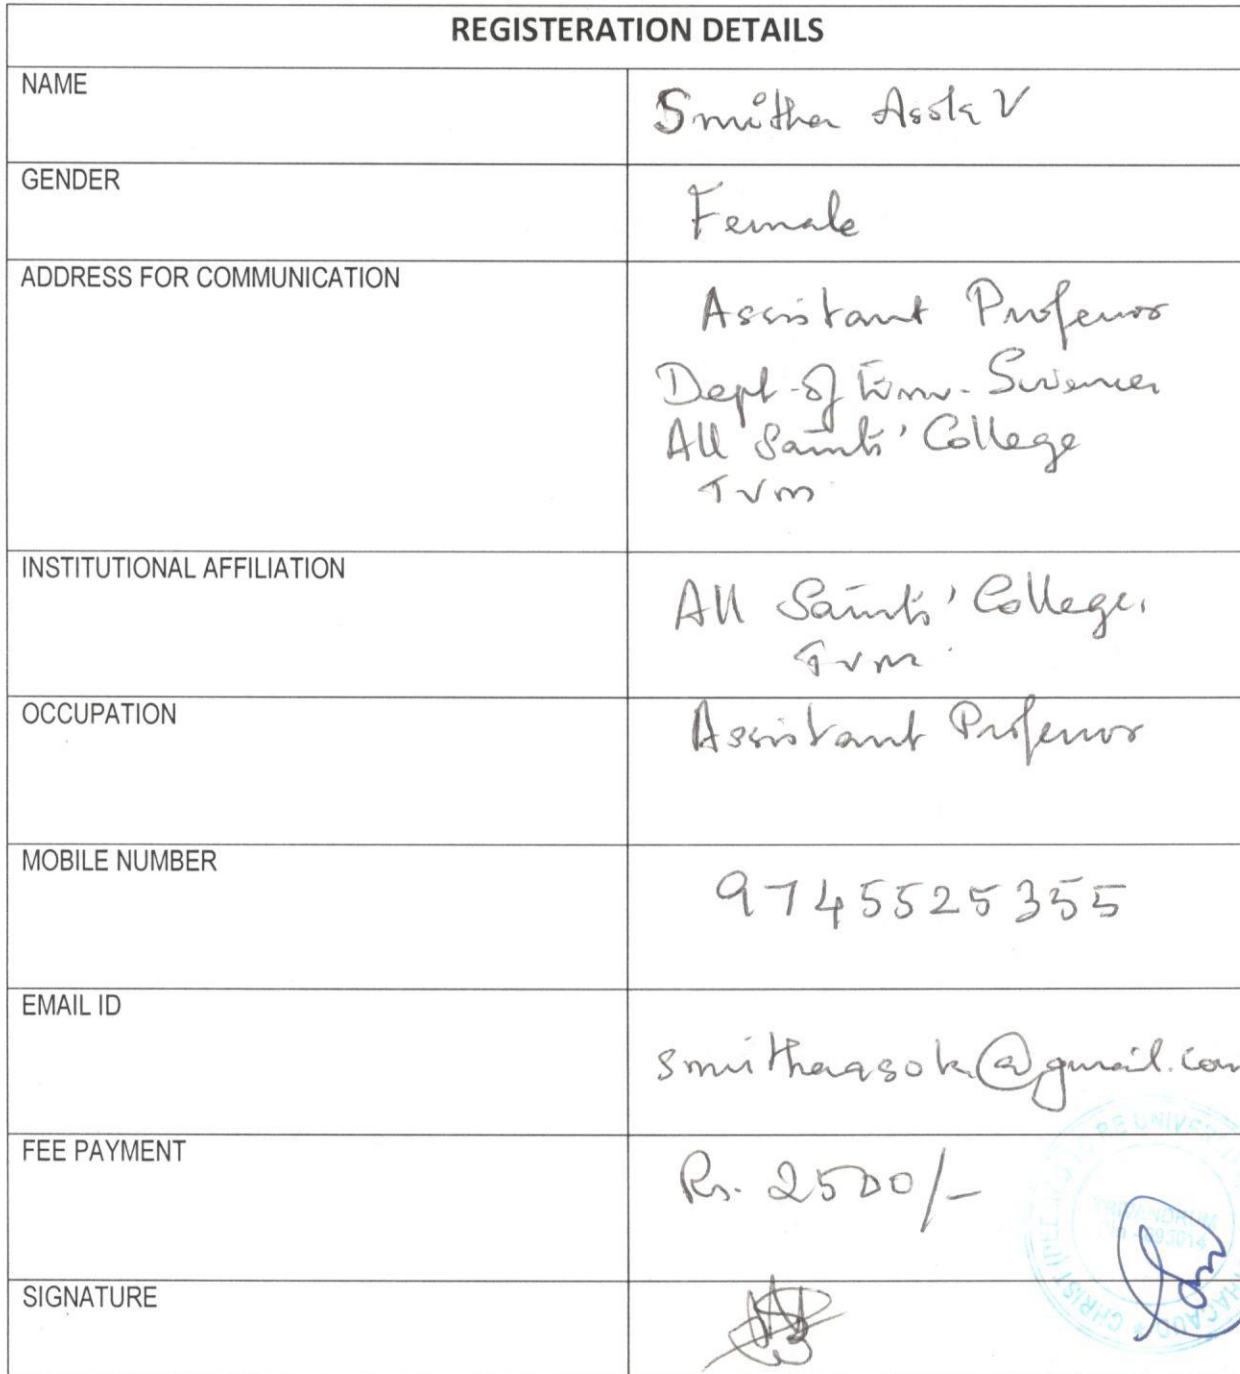 REGISTERATION DETAILS
NAME
Smitha Asok V
GENDER
Female
ADDRESS FOR COMMUNICATION
Assistant Professor
Dept. of Env. Sciences
All Saints' College
Tvm.
INSTITUTIONAL AFFILIATION
All Saints' College,
Tvm.
OCCUPATION
Assistant Professor
MOBILE NUMBER
9745525355
EMAIL ID
smithaasok@gmail.com
FEE PAYMENT
Rs. 2500/-
SIGNATURE
TRIVANDRUM
CHRIST